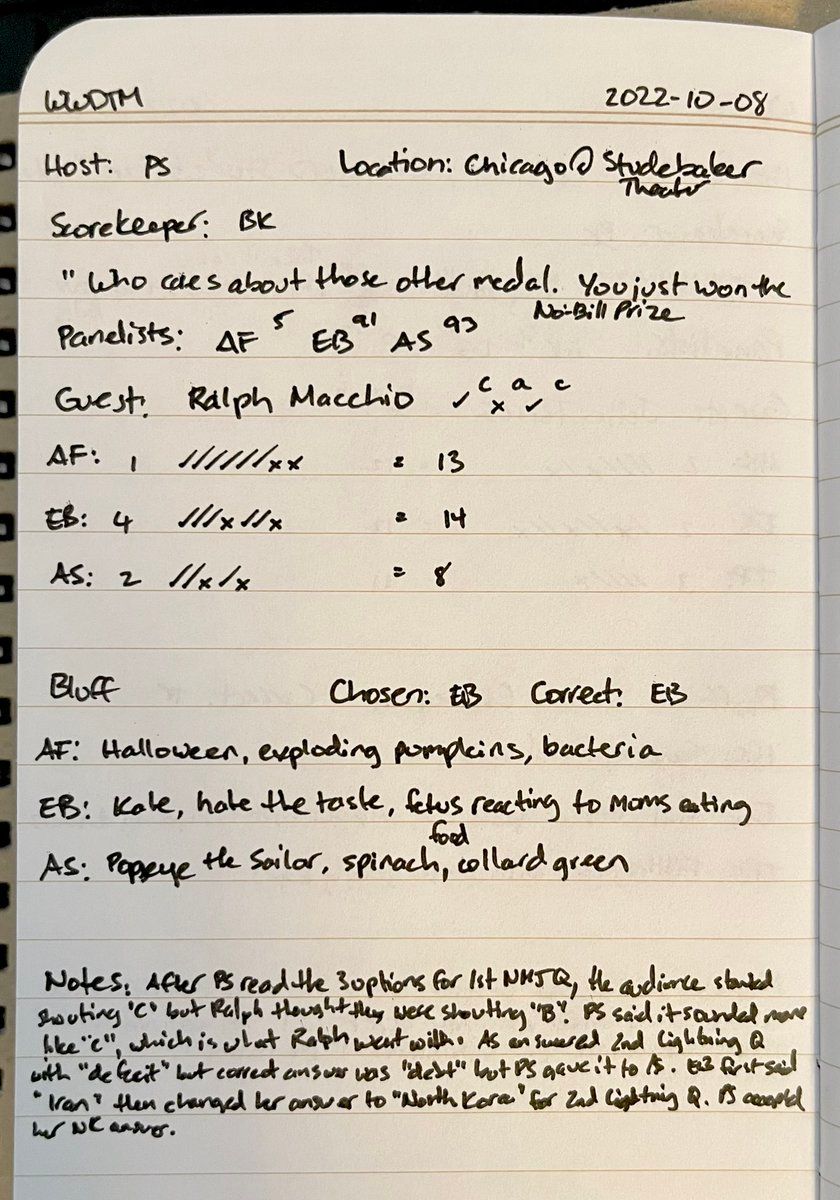 WWDTM 2022-10-08
Host: PS Location: Chicago @ Studebaker
Theater
Scorekeeper: BK
" Who cares about those other medal. You just won the
No-Bill Prize
Panelists: AF 5 EB 91 AS 93
Guest: Ralph Macchio ✓ c x a ✓ c
AF: 1 //////xx = 13
EB: 4 ///x//x = 14
AS: 2 //x/x = 8
Bluff Chosen: EB Correct: EB
AF: Halloween, exploding pumpkins, bacteria
EB: Kale, hate the taste, fetus reacting to Moms eating
food
AS: Popeye the Sailor, spinach, collard green
Notes: After PS read the 3 options for 1st NMJQ, the audience started
shouting "C" but Ralph thought they were shouting "B". PS said it sounded more
like "C", which is what Ralph went with. AS answered 2nd Lightning Q
with "deficit" but correct answer was "debt" but PS gave it to AS. EB first said
"Iran" then changed her answer to "North Korea" for 2nd Lightning Q. PS accepted
her NK answer.